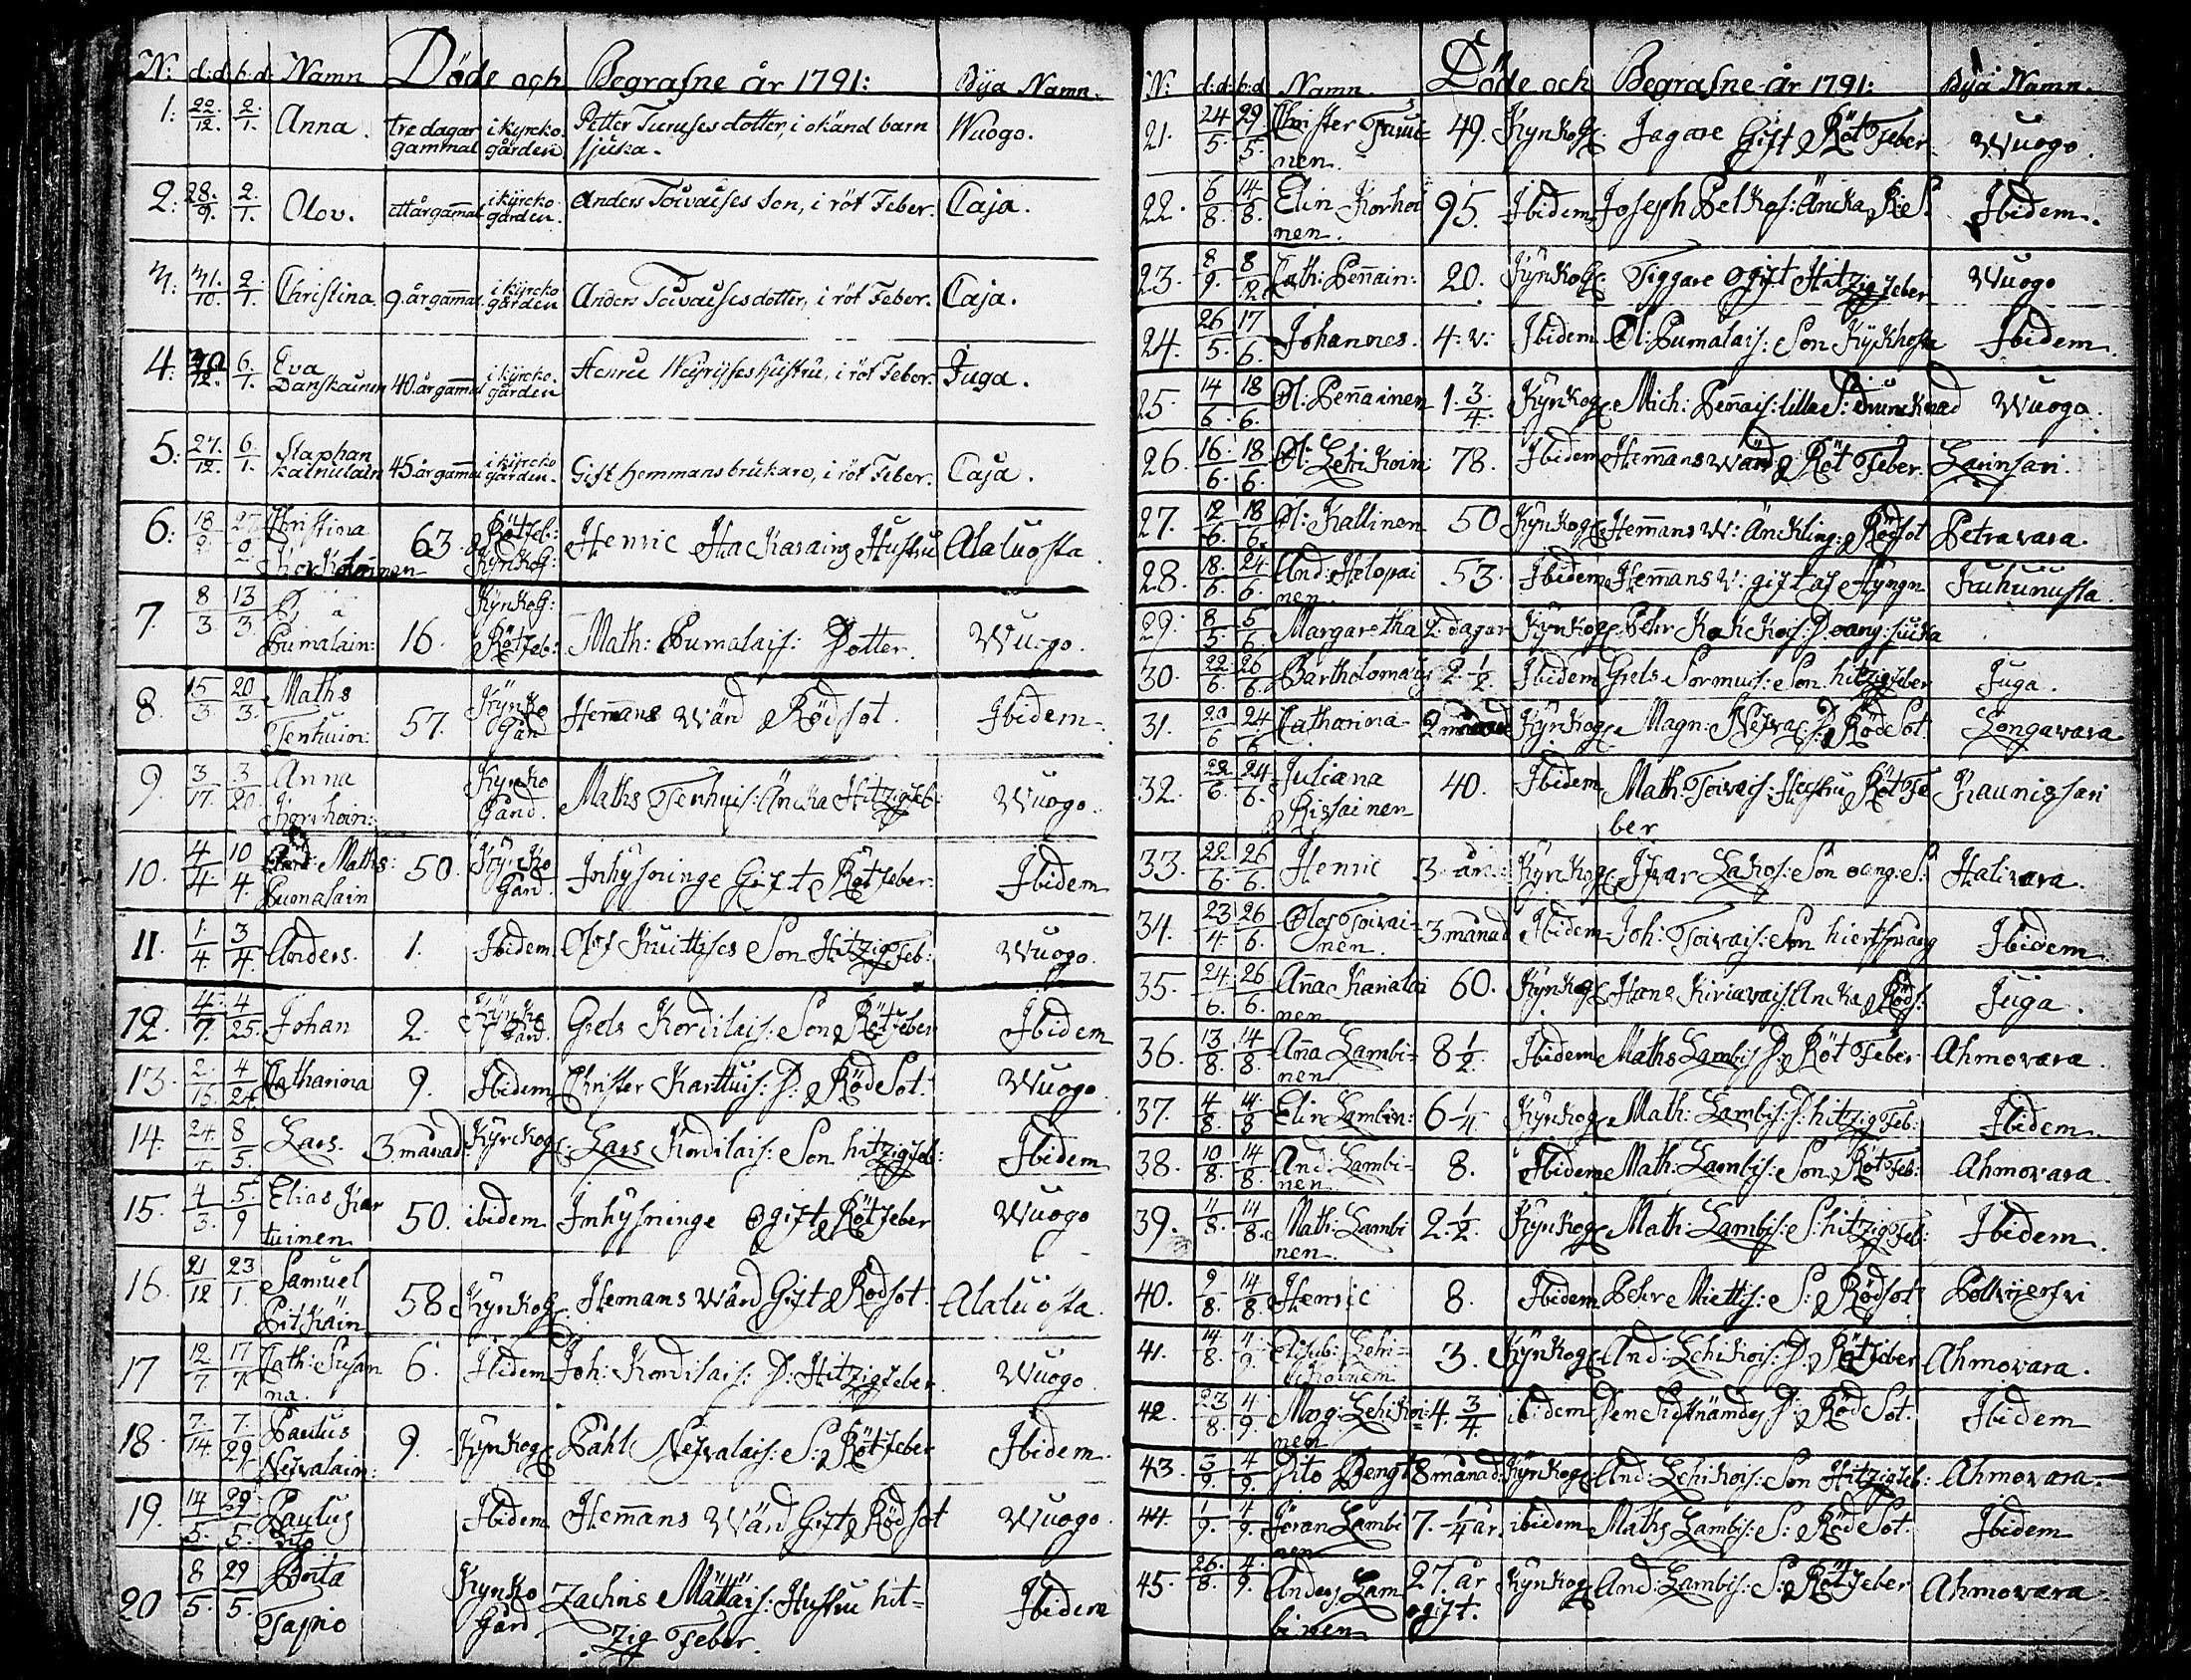 N: d:d: b:d: Namn Döde och Begrafne år 1791: Bya Namn.
1: 22/12. 2/1. Anna. tre dagar gammal i kyrcko gården Petter Turuses dotter, i okänd barn sjuka. Wuogo.
2: 28./9. 2/1. Olov. ett år gam̄al i kyrcko gården. Anders Toivaises son, i röt Feber. Caja.
3: 31./10. 2/1. Christina. 9. år gam̄al. i kyrcko gården Anders Toivaises dotter, i röt Feber. Caja.
4: /12. 6/1. Eva Danskainen 40. år gam̄al i kyrcko. gården Henric hustru, i röt Feber. Juga.
5: 27./12. 6/1. Staphan 45. år gam̄al i kyrcko gården. Gift hemmans brukare, i röt Feber. Caja.
6: 18 27 Christina 63. Rötfeb: KyrkoG: Henric Hackarains Hustru Alaluosta
7. 8/3. 13/3. Pumalain: 16. KyrkoG: Rötfeb: Math: Pumalais: Dotter. Wuogo.
8. 15/3. 20/3. Maths Tenhuin: 57. Kyrko Gård Hem̄ans Wärd Rödsot. Ibidem.
9. 3/17. 3/20. Anna Korhoin: Kyrko Gård. Maths Tenhuis: Äncka Hitzigfeb: Wuogo.
10. 4/4. 10/4. Maths: Pumalain 50. Kyrko Gård. Inhysninge Gift Rötfeber. Ibidem
11. 1./4. 3/4. Anders. 1. Ibidem. Olof Kuittises Son Hitzigfeb: Wuogo.
12. 4./7. 4/25. Johan 2. Kyrko Gård. Grels Kordilais: Son Rötfeber Ibidem
13. 2./15. 4/24. Catharina 9. Ibidem Christer Karttuis: D: RödSot. Wuogo.
14. 24. 8/5. Lars. 3. månad: KyrckoG: Lars Kordilais: Son hitzigfeb: Ibidem
15. 4/3. 5./9 Elias Kartuinen 50. ibidem Inhysninge Ogift Rötfeber Wuogo
16. 21/12 23/1. Samuel Pitkäin 58 KyrkoG: Hemans Wärd Gift Rödsot. Alaluosta.
17 12/7. 17/7. Cath: Susanna. 6. Ibidem Joh: Kordilais: D: Hitzigfeber Wuogo.
18. 7./14. 7./29. Paulus Nevalain: 9. Kyrkog: Påhl Nevalais: S: Rötfeber Ibidem.
19. 14/5. 29/5. Paulus Dito Ibidem Hem̄ans Wärd Gift Rödsot Wuogo.
20 8/5. 29/5. Brita Tapio Kyrko Gård Zachris Mättäis: Hustru hit=
Zig Feber. Ibidem
N: d:d: b:d Namn. Döde och Begrafne år 1791: Bya Namn.
21. 24/5. 29/5. Christer nen. 49. KyrkoG: Jagare Gift RötFeber Wuogo.
22. 6/8. 14/8. Elin Korhoinen. 95. Ibidem Joseph Belkos: Äncka Ibidem.
23. 8/9. 8 Cath: Pen̄ain: 20. KyrkoG: Tiggare ogift Hatzigfeber Wuogo
24. 26/5. 17/6. Johannes. 4. v: Ibidem Ol: Pumalais: Son Kykhosta Ibidem.
25. 14/6. 18/6. Ol: Pen̄ainen 1. 3./4. Kyrkog: Mich: Pen̄ais: lilla S: druncknad Wuogo.
26. 16/6. 18/6. Ol: Lehikoin: 78. Ibidem Hem̄ans wärd RötFeber. Larinsari.
27. 12/6. 18/6. Ol: Kallinen 50 Kyrkog: Hem̄ans W: Änckling: Rödsot Petravara.
28. 18./6. 24/6. And: Helopainen 53. Ibidem Hem̄ans W: gift af Hyngn
29. 8/5. 5/6. Margaretha 2. dagar Kyrkog: Pehr Kokkois: D oang: siuka
30. 22./6. 26/6. Bartholomæus 2. 1/2. Ibidem Grels Sormuis: Son hitzigfeber Juga.
31. 20/6 24/6 Catharina 2 månad Kyrkog: Magn: Neva: D: RödSot. Longavara
32. 22/6. 24/6. Juliana Rissainen 40. Ibidem Math: Toivais: Hustru RötFe
ber Kaunissari
33. 22/6. 26/6. Henric 3. år. Kyrkog: Ifvar Lakos: Son oang: S: Halivara.
34. 23/4. 26/6. Olof Toivainen. 3 månad Ibidem Joh: Toivais: Son hiertsprång Ibidem.
35. 24/6. 26/6. An̄a nen 60. Kyrkog: Hans Kiriavais: Ancka Röds: Juga.
36. 13/8. 14/8. An̄a Lambi=
nen 8 1/2. Ibidem Maths Lambis: D: RötFeber Ahmovara.
37. 4/8. 4/8 Elin Lambin: 6 1/4. Kyrkog: Math: Lambis: D: hitzigfeb: Ibidem.
38. 10/8. 14/8. And: Lambi=
nen 8. Ibidem Math: Lambis: Son Rötfeb: Ahmovara.
39. 11/8. 14/8. Math: Lambi
nen. 2. 1/2. Kyrkog: Math: Lambis: S: hitzigfeb: Ibidem.
40. 9/8. 14/8. Henric 8. Ibidem Pehr Miettis: S: Rödsot Polvijervi
41. 14/8. 4/9. Elisab: Lehi=
koinen 3. Kyrkog: And: Lehikois: D: Rötfeber Ahmovara.
42. 23/8. 4/9. Marg: Lehikoi=
nen 4. 3/4. ibidem Den Sidstnämdes D: RödSot. Ibidem
43. 3/9. 4/9. Dito Bengt 8 månad: Kyrkog: And: Lehikois: Son Hitzigfeb: Ahmovara.
44. 1/9. 4/9. Jöran Lambi
nen 7. 1/4 år. ibidem Maths Lambis: S: RödSot. Ibidem
45. 26./8. 4./9. Anders Lam
binen 27. år ogift. Kyrkog: And: Lambis: S: Rötfeber Ahmovara.